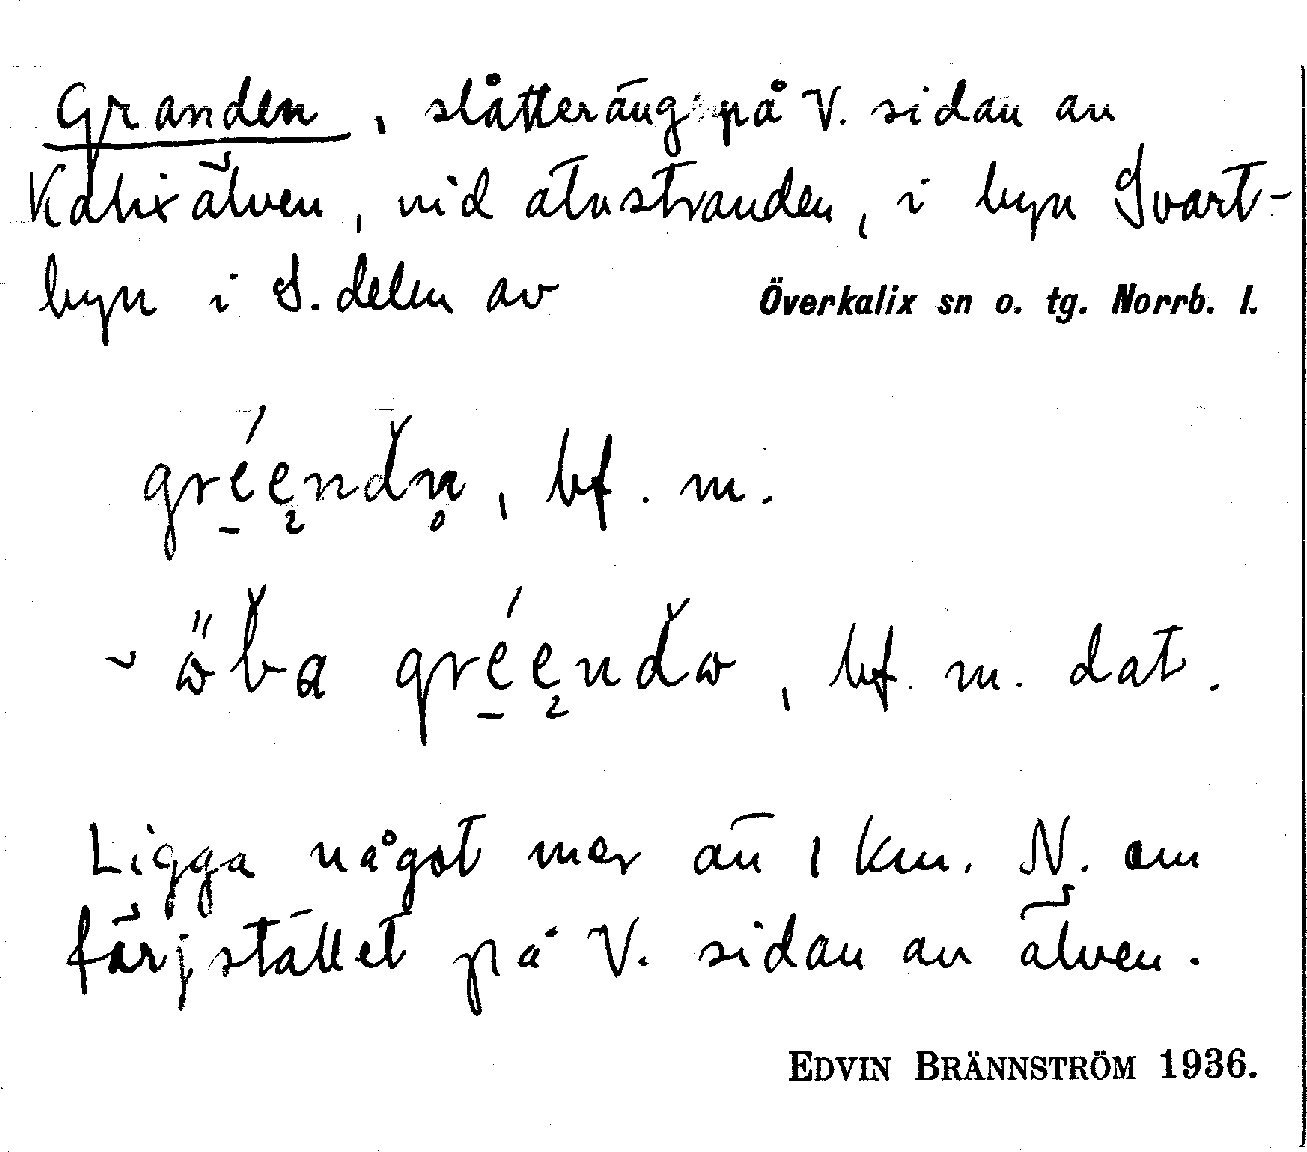 Granden, slåtteräng på V. sidan av
Kalixälven, vid älvstranden, i byn Svart-
byn i S. delen av Överkalix sn o. tg. Norrb. l.
bf. m.
~ bf. m. dat.
Ligga något mer än 1 km. N. om
färjstället på V. sidan av älven.
EDVIN BRÄNNSTRÖM 1936.